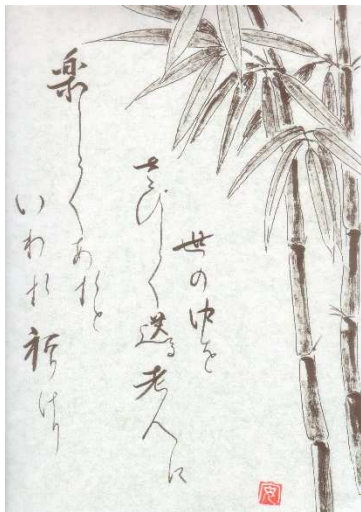 世の中を
さびしく送る老人に
楽しくあれと
いわれ祈りけり